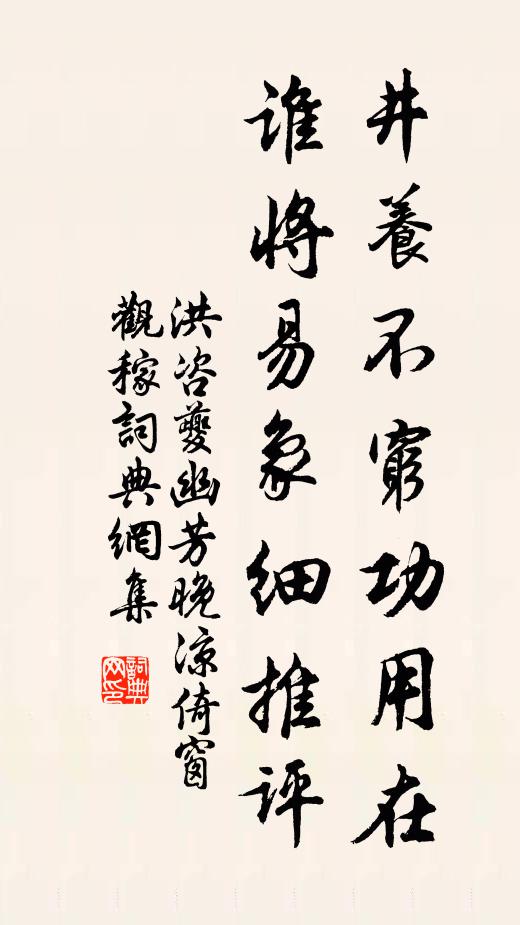 井養不窮功用在
誰將易象細推評
洪咨夔幽芳晚凉倚窗
觀稼詞典網集
詞典网印